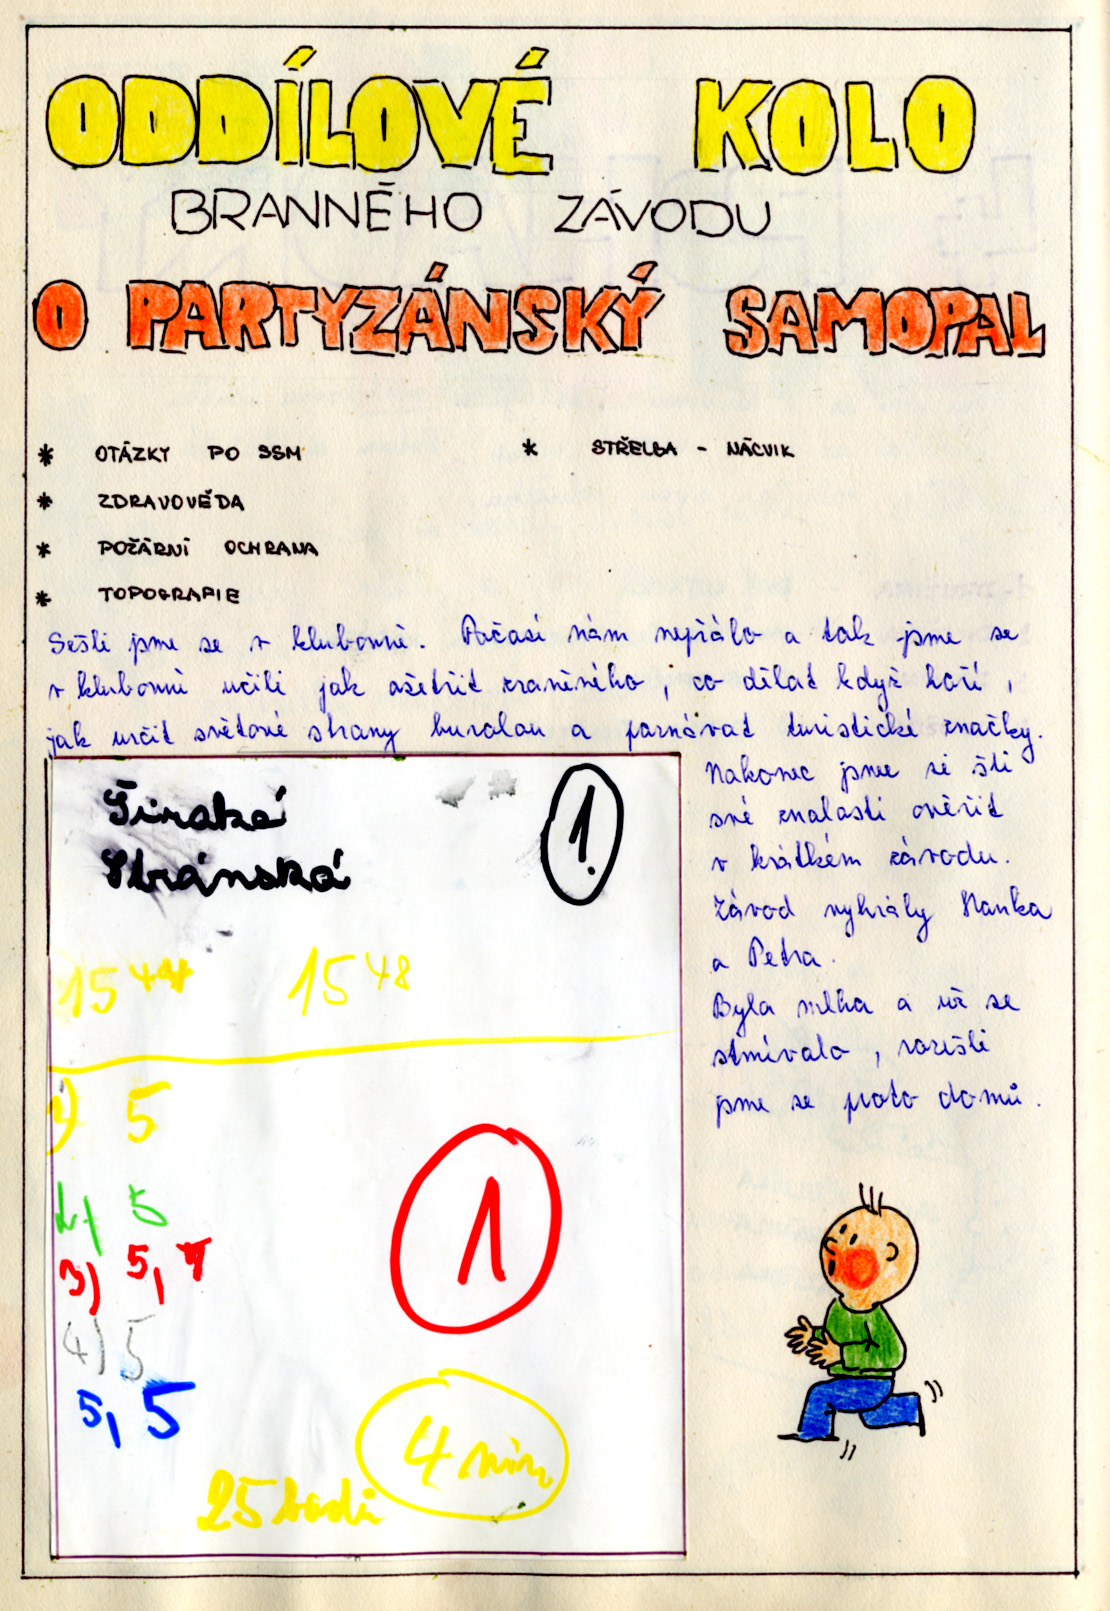 ODDÍLOVÉ KOLO
BRANNÉHO ZÁVODU
O PARTYZÁNSKÝ SAMOPAL
* OTÁZKY PO SSM
* STŘELBA - NÁCVIK
* ZDRAVOVĚDA
* POŽÁRNÍ OCHRANA
* TOPOGRAFIE
Sešli jsme se v klubovně. Počasí nám nepřálo a tak jsme se
v klubovně učili jak ošetřit zraněného, co dělat když hoří,
jak určit světové strany buzolou a poznávat turistické značky.
Nakonec jsme si šli
své znalosti ověřit
v krátkém závodu.
Závod vyhrály Hanka
a Petra.
Byla mlha a už se
stmívalo, rozešli
jsme se proto domů.
Stránská
1.
15 44 15 48
1) 5
2) 5
3) 5,
4) 5
5, 5
1
4 min
25 bodů